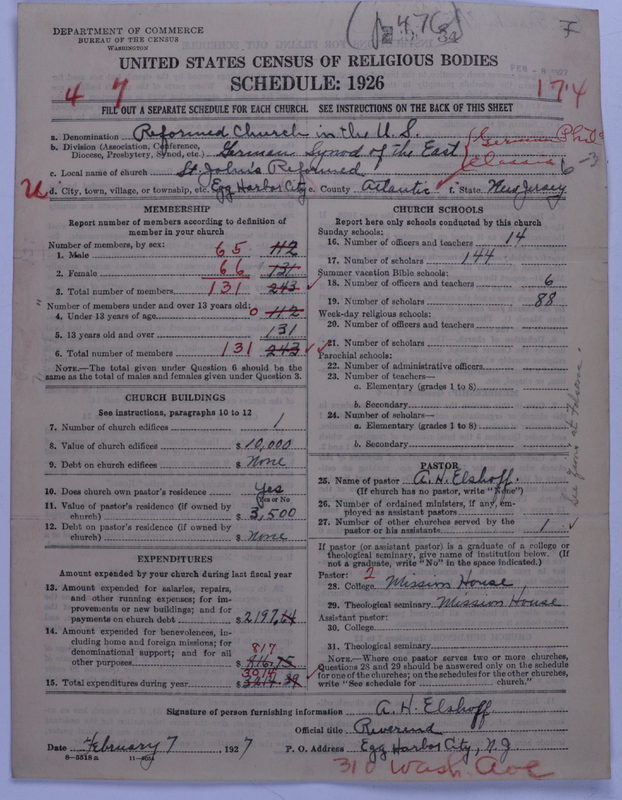 476
DEPARTMENT OF COMMERCE
BUREAU OF THE CENSUS
WASHINGTON
UNITED STATES CENSUS OF RELIGIOUS BODIES
SCHEDULE: 1926
4 7
174
FILL OUT A SEPARATE SCHEDULE FOR EACH CHURCH. SEE INSTRUCTIONS ON THE BACK OF THIS SHEET
a. Denomination Reformed Church in the U. S.
b. Division (Association, Conference, Diocese, Presbytery, Synod, etc.) German Synod of the East German Phil Classis
c. Local name of church St. John's Reformed
d. City, town, village, or township, etc. Egg Harbor City e. County Atlantic f. State New Jersey
MEMBERSHIP
Report number of members according to definition of
member in your church
Number of members, by sex:
1. Male 65 112
2. Female 66 131
3. Total number of members 131 243
Number of members under and over 13 years old:
4. Under 13 years of age 0 112
5. 13 years old and over 131
6. Total number of members 131 243
NOTE.—The total given under Question 6 should be
same as the total of males and females given under Question 3.
CHURCH BUILDINGS
See instructions, paragraphs 10 to 12
7. Number of church edifices 1
8. Value of church edifices $ 10,000
9. Debt on church edifices $ None
10. Does church own pastor's residence Yes
(Yes or No)
11. Value of pastor's residence (if owned by
church) $ 3,500
12. Debt on pastor's residence (if owned by
church) $ None
EXPENDITURES
Amount expended by your church during last fiscal year
13. Amount expended for salaries, repairs,
and other running expenses; for im-
provements or new buildings; and for
payments on church debt $ 2197.64
14. Amount expended for benevolences, in-
cluding home and foreign missions; for
denominational support; and for all
other purposes 817
15. Total expenditures during year $
CHURCH SCHOOLS
Report here only schools conducted by this church
Sunday schools:
16. Number of officers and teachers 14
17. Number of scholars 144
Summer vacation Bible schools:
18. Number of officers and teachers 6
19. Number of scholars 88
Week-day religious schools:
20. Number of officers and teachers
21. Number of scholars
Parochial schools:
22. Number of administrative officers
23. Number of teachers—
a. Elementary (grades 1 to 8)
b. Secondary
24. Number of scholars—
a. Elementary (grades 1 to 8)
b. Secondary
PASTOR
25. Name of pastor A. H. Elshoff.
(If church has no pastor, write "None")
26. Number of ordained ministers, if any, em-
ployed as assistant pastors
27. Number of other churches served by the
pastor or his assistants 1
If pastor (or assistant pastor) is a graduate of a college or
theological seminary, give name of institution below. (If
not a graduate, write "No" in the space indicated.)
Pastor: 2
28. College Mission House
29. Theological seminary Mission House
Assistant pastor:
30. College
31. Theological seminary
NOTE.—Where one pastor serves two or more churches,
Questions 28 and 29 should be answered only on the schedule
for one of the churches; on the schedules for the other churches,
write "See schedule for church."
Signature of person furnishing information A. H. Elshoff
Official title Riverend
Date February 7, 1927 P. O. Address Egg Harbor City, N. J.
8-5518 a
310 Wash. Ave